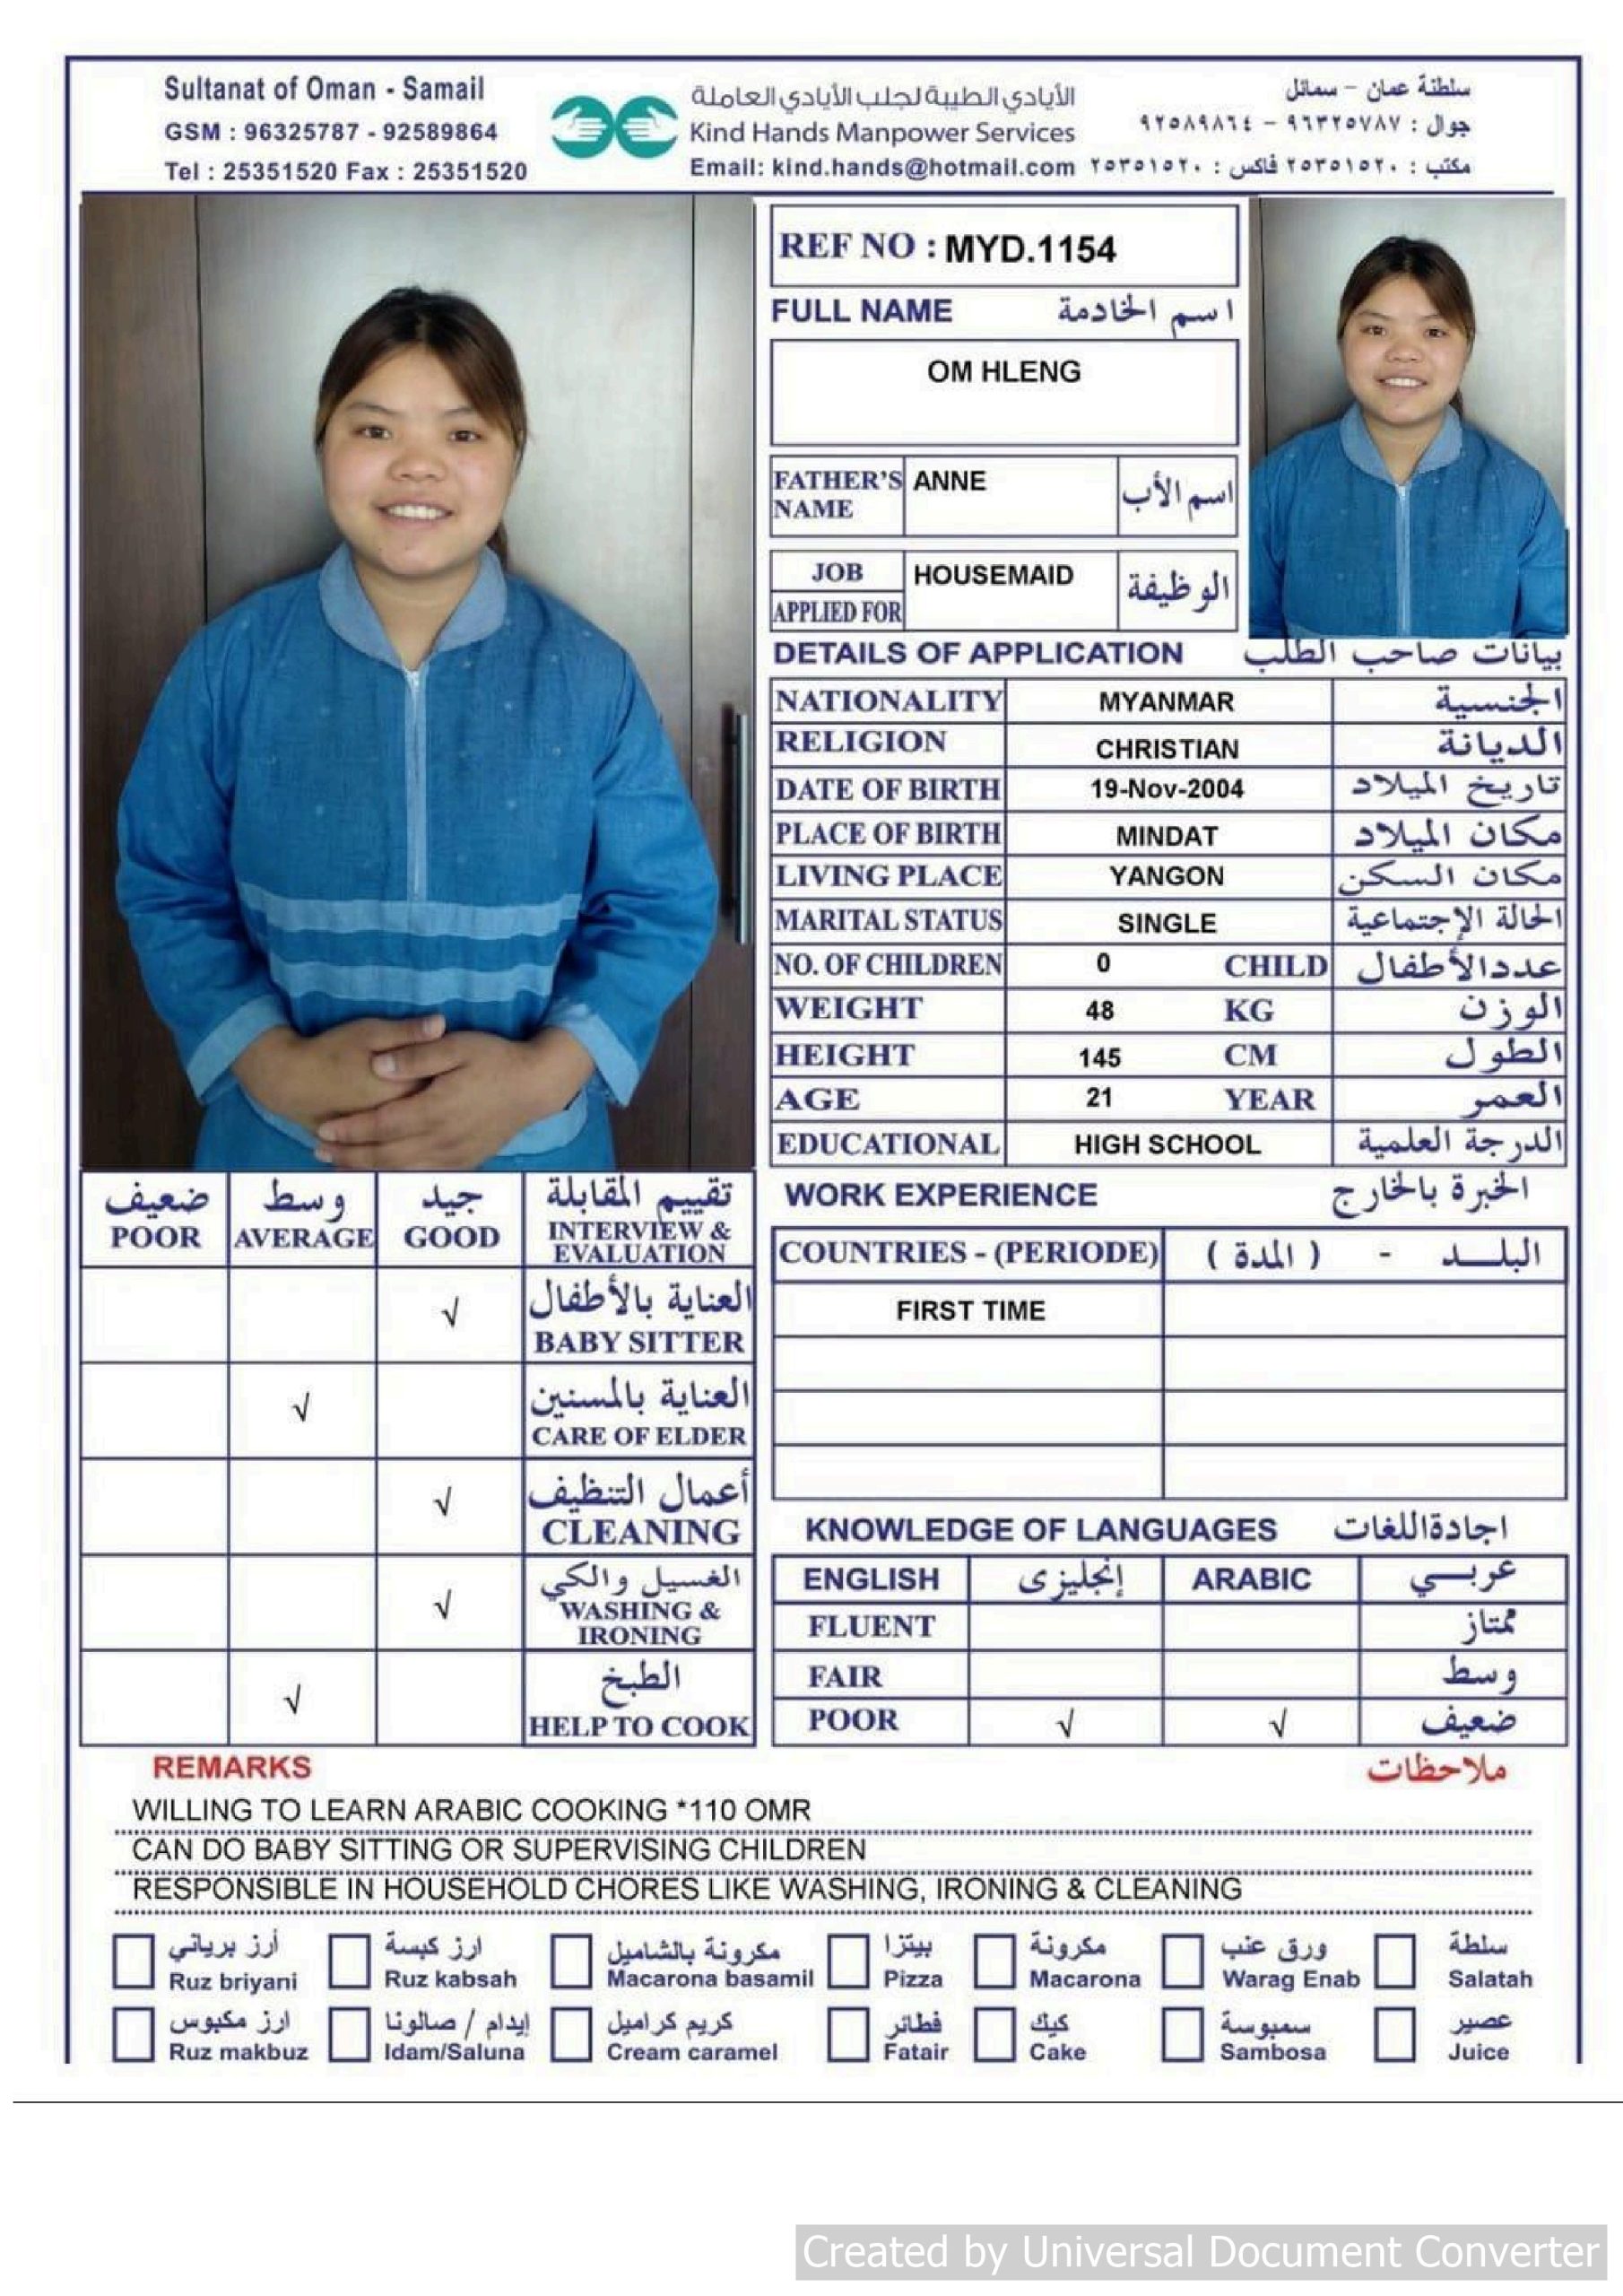 Sultanat of Oman - Samail
GSM : 96325787 - 92589864
Tel : 25351520 Fax : 25351520
الأيادي الطيبة لجلب الأيادي العاملة
Kind Hands Manpower Services
Email: kind.hands@hotmail.com
سلطنة عمان - سمائل
جوال : ٩٦٣٢٥٧٨٧ - ٩٢٥٨٩٨٦٤
مكتب : ٢٥٣٥١٥٢٠ فاكس : ٢٥٣٥١٥٢٠
REF NO : MYD.1154
FULL NAME اسم الخادمة
OM HLENG
FATHER'S NAME ANNE اسم الأب
JOB APPLIED FOR HOUSEMAID الوظيفة
DETAILS OF APPLICATION بيانات صاحب الطلب
NATIONALITY MYANMAR الجنسية
RELIGION CHRISTIAN الديانة
DATE OF BIRTH 19-Nov-2004 تاريخ الميلاد
PLACE OF BIRTH MINDAT مكان الميلاد
LIVING PLACE YANGON مكان السكن
MARITAL STATUS SINGLE الحالة الإجتماعية
NO. OF CHILDREN 0 CHILD عدد الأطفال
WEIGHT 48 KG الوزن
HEIGHT 145 CM الطول
AGE 21 YEAR العمر
EDUCATIONAL HIGH SCHOOL الدرجة العلمية
ضعيف وسط جيد تقييم المقابلة
POOR AVERAGE GOOD INTERVIEW & EVALUATION
√ العناية بالأطفال
BABY SITTER
√ العناية بالمسنين
CARE OF ELDER
√ أعمال التنظيف
CLEANING
√ الغسيل والكي
WASHING & IRONING
√ الطبخ
HELP TO COOK
WORK EXPERIENCE الخبرة بالخارج
COUNTRIES - (PERIODE) البلــد - ( المدة )
FIRST TIME
KNOWLEDGE OF LANGUAGES اجادة اللغات
ENGLISH إنجليزى ARABIC عربــي
FLUENT ممتاز
FAIR وسط
POOR √ √ ضعيف
REMARKS ملاحظات
WILLING TO LEARN ARABIC COOKING *110 OMR
CAN DO BABY SITTING OR SUPERVISING CHILDREN
RESPONSIBLE IN HOUSEHOLD CHORES LIKE WASHING, IRONING & CLEANING
أرز برياني ارز كبسة مكرونة بالشاميل بيتزا مكرونة ورق عنب سلطة
Ruz briyani Ruz kabsah Macarona basamil Pizza Macarona Warag Enab Salatah
ارز مكبوس إيدام / صالونا كريم كراميل فطائر كيك سمبوسة عصير
Ruz makbuz Idam/Saluna Cream caramel Fatair Cake Sambosa Juice
Created by Universal Document Converter